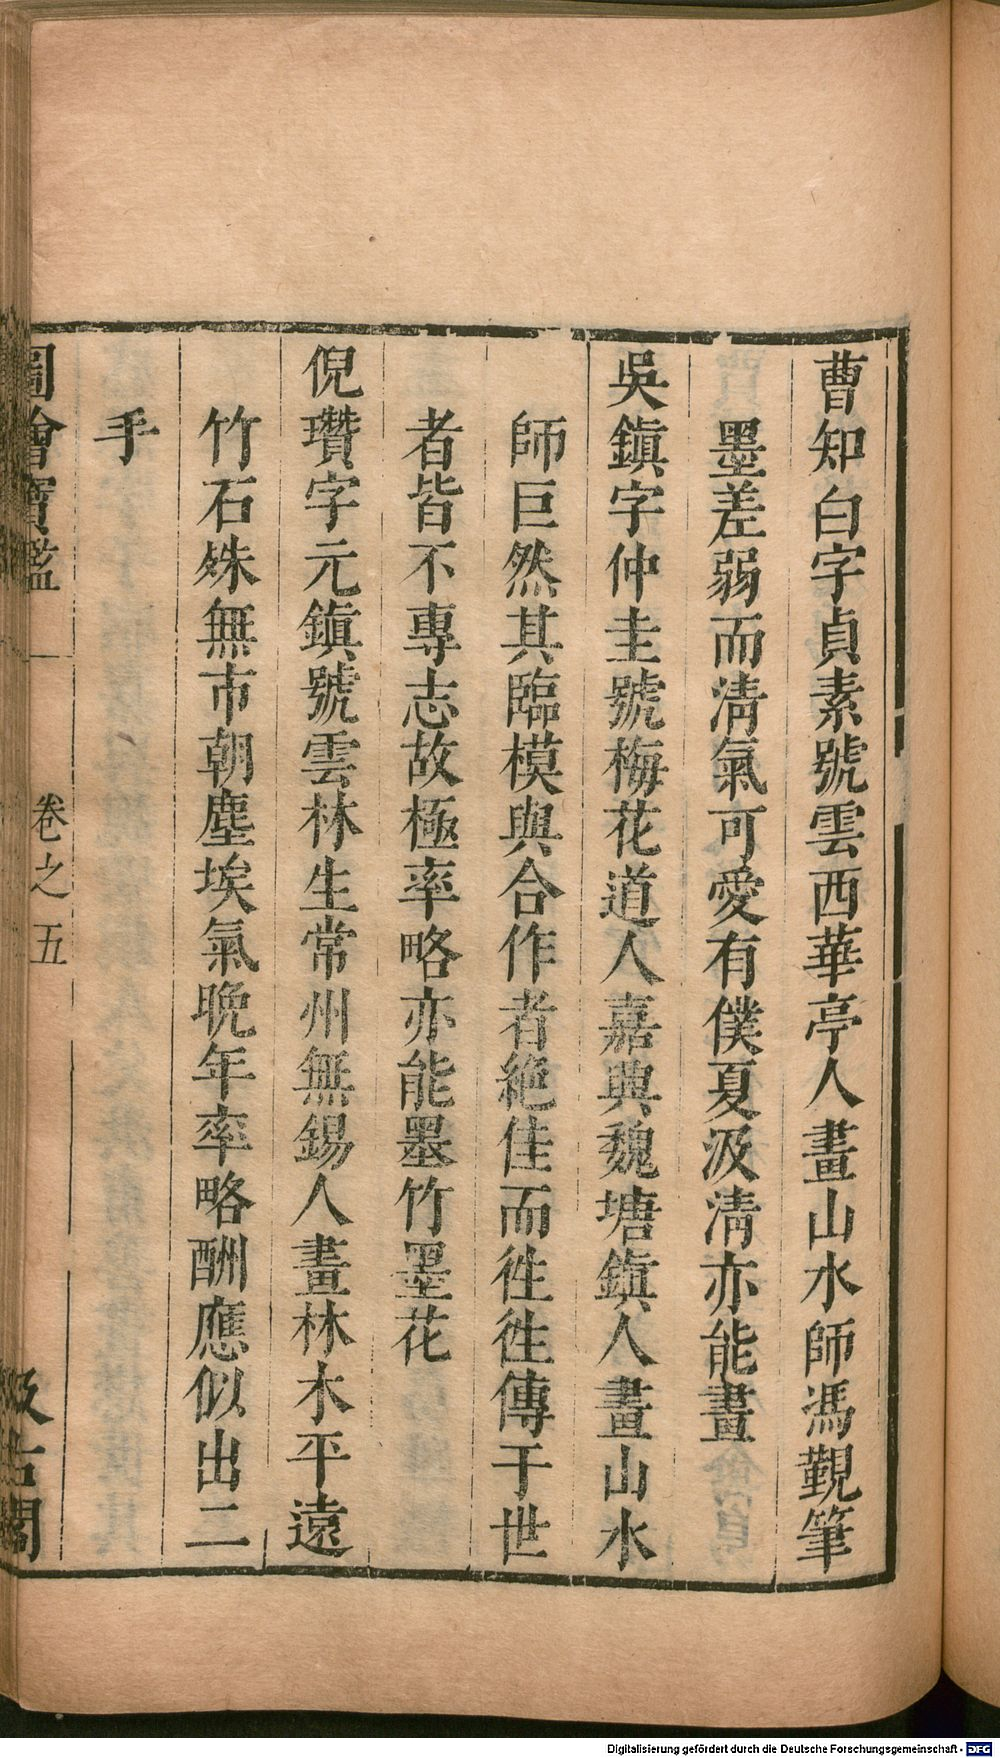 曹知白字貞素號雲西華亭人畫山水師馮覲筆
墨差弱而淸氣可愛有僕夏汲淸亦能畫
吳鎭字仲圭號梅花道人嘉興魏塘鎭人畫山水
師巨然其臨模與合作者絶佳而徃徃傳于世
者皆不專志故極率略亦能墨竹墨花
倪瓚字元鎭號雲林生常州無錫人畫林木平遠
竹石殊無市朝塵埃氣晩年率略酬應似出二
手
圖繪寶鑑 卷之五 汲古閣
Digitalisierung gefördert durch die Deutsche Forschungsgemeinschaft - DFG